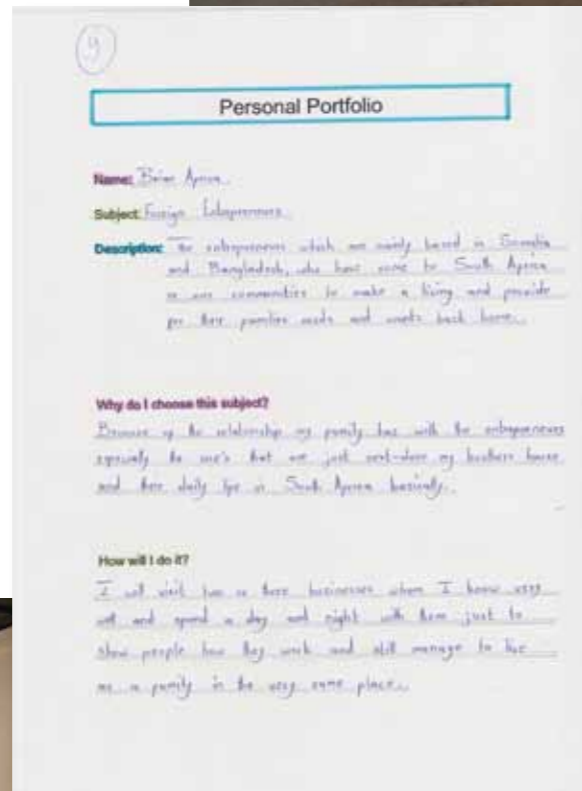 9
Personal Portfolio
Name: Brian
Subject: Foreign Entrepreneurs
Description: The entrepreneurs which are mainly based in Somalia
and Bangladesh, who have come to South Africa
in our communities to make a living and provide
for their families needs and wants back home.
Why do I choose this subject?
Because of the relationship my family has with the entrepreneurs
especially the one's that are just next-door my brothers house
and their daily life in South Africa basically.
How will I do it?
I will visit two or three businesses whom I know very
well and spend a day and night with them just to
show people how they work and still manage to live
as a family in the very same place.